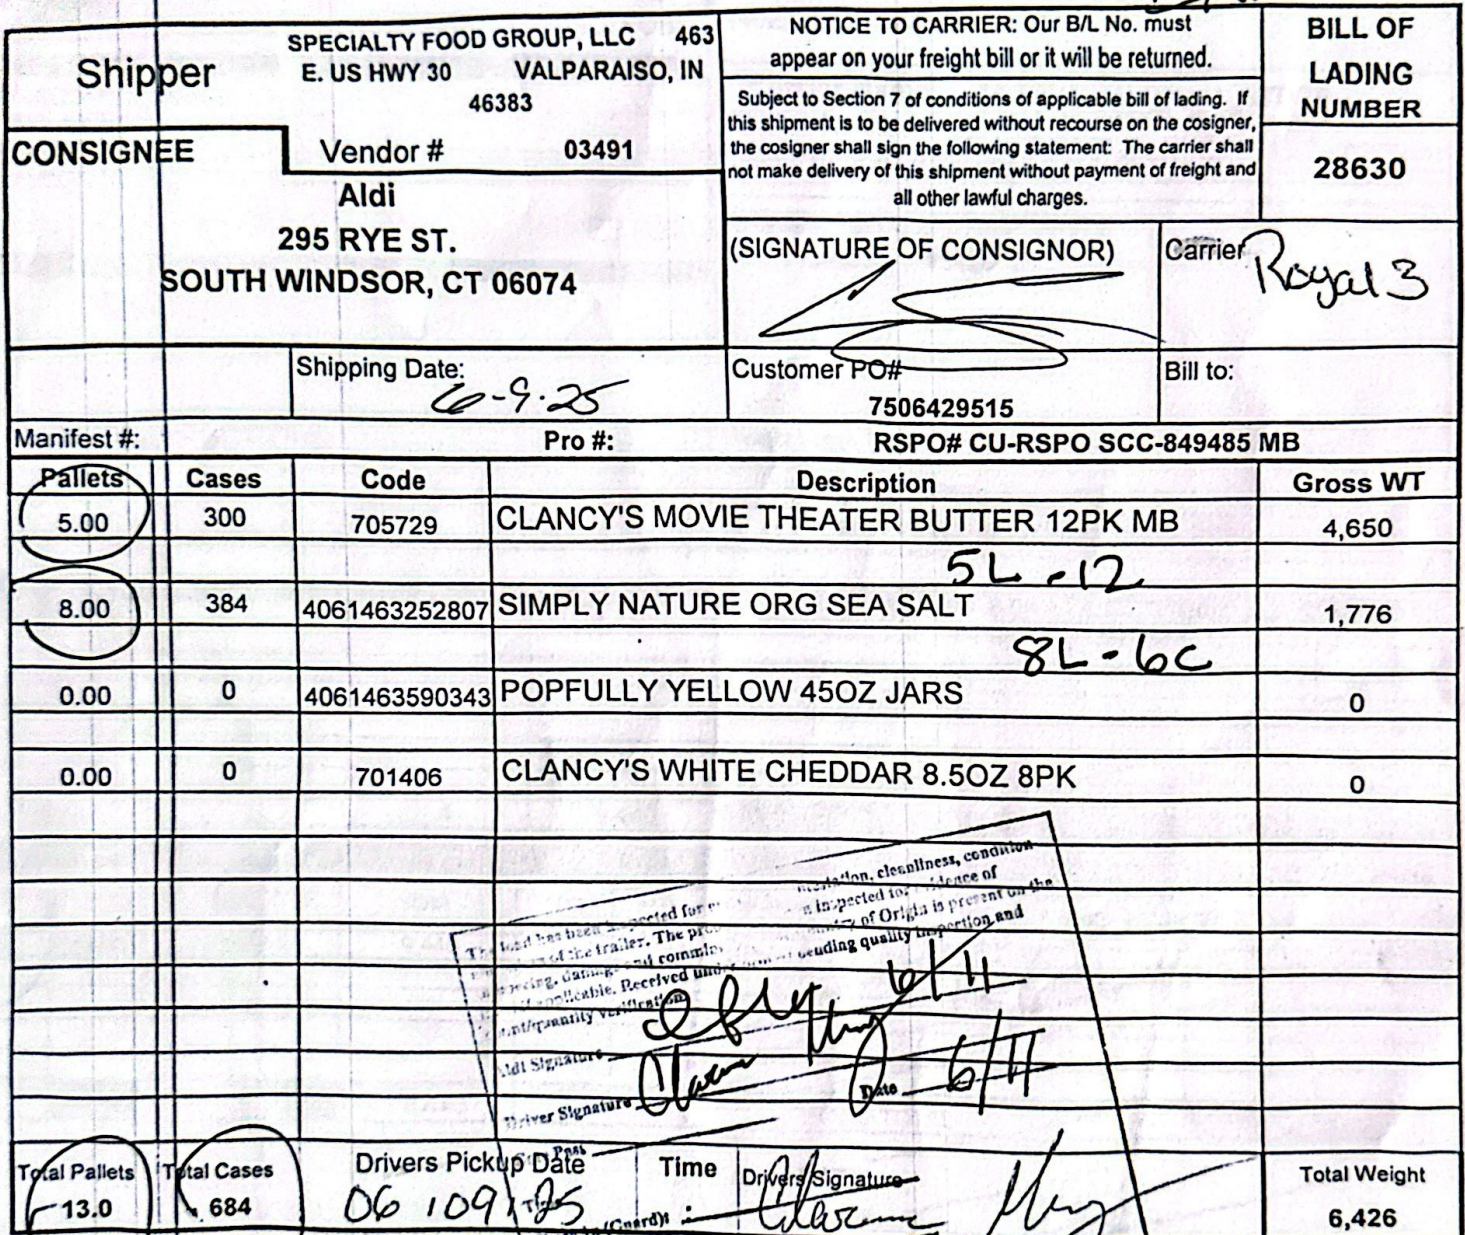 Shipper
SPECIALTY FOOD GROUP, LLC 463
E. US HWY 30 VALPARAISO, IN
46383
NOTICE TO CARRIER: Our B/L No. must
appear on your freight bill or it will be returned.
BILL OF
LADING
NUMBER
28630
Subject to Section 7 of conditions of applicable bill of lading. If
this shipment is to be delivered without recourse on the cosigner,
the cosigner shall sign the following statement: The carrier shall
not make delivery of this shipment without payment of freight and
all other lawful charges.
CONSIGNEE
Vendor # 03491
Aldi
295 RYE ST.
SOUTH WINDSOR, CT 06074
(SIGNATURE OF CONSIGNOR)
Carrier Royal 3
Shipping Date:
6-9-25
Customer PO#
7506429515
Bill to:
Manifest #: Pro #: RSPO# CU-RSPO SCC-849485 MB
Pallets Cases Code Description Gross WT
5.00 300 705729 CLANCY'S MOVIE THEATER BUTTER 12PK MB 4,650
5L-12
8.00 384 4061463252807 SIMPLY NATURE ORG SEA SALT 1,776
8L-6C
0.00 0 4061463590343 POPFULLY YELLOW 45OZ JARS 0
0.00 0 701406 CLANCY'S WHITE CHEDDAR 8.5OZ 8PK 0
The load has been inspected for cleanliness, condition
of the trailer. The inspected for evidence of
damage and of Origin is present on the
if applicable. Received under pending quality inspection and
/quantity verification
6/11
Aldi Signature
Driver Signature Date 6/11
Total Pallets Total Cases Drivers Pickup Date Time Drivers Signature Total Weight
13.0 684 06/09/25 6,426
(Guard):